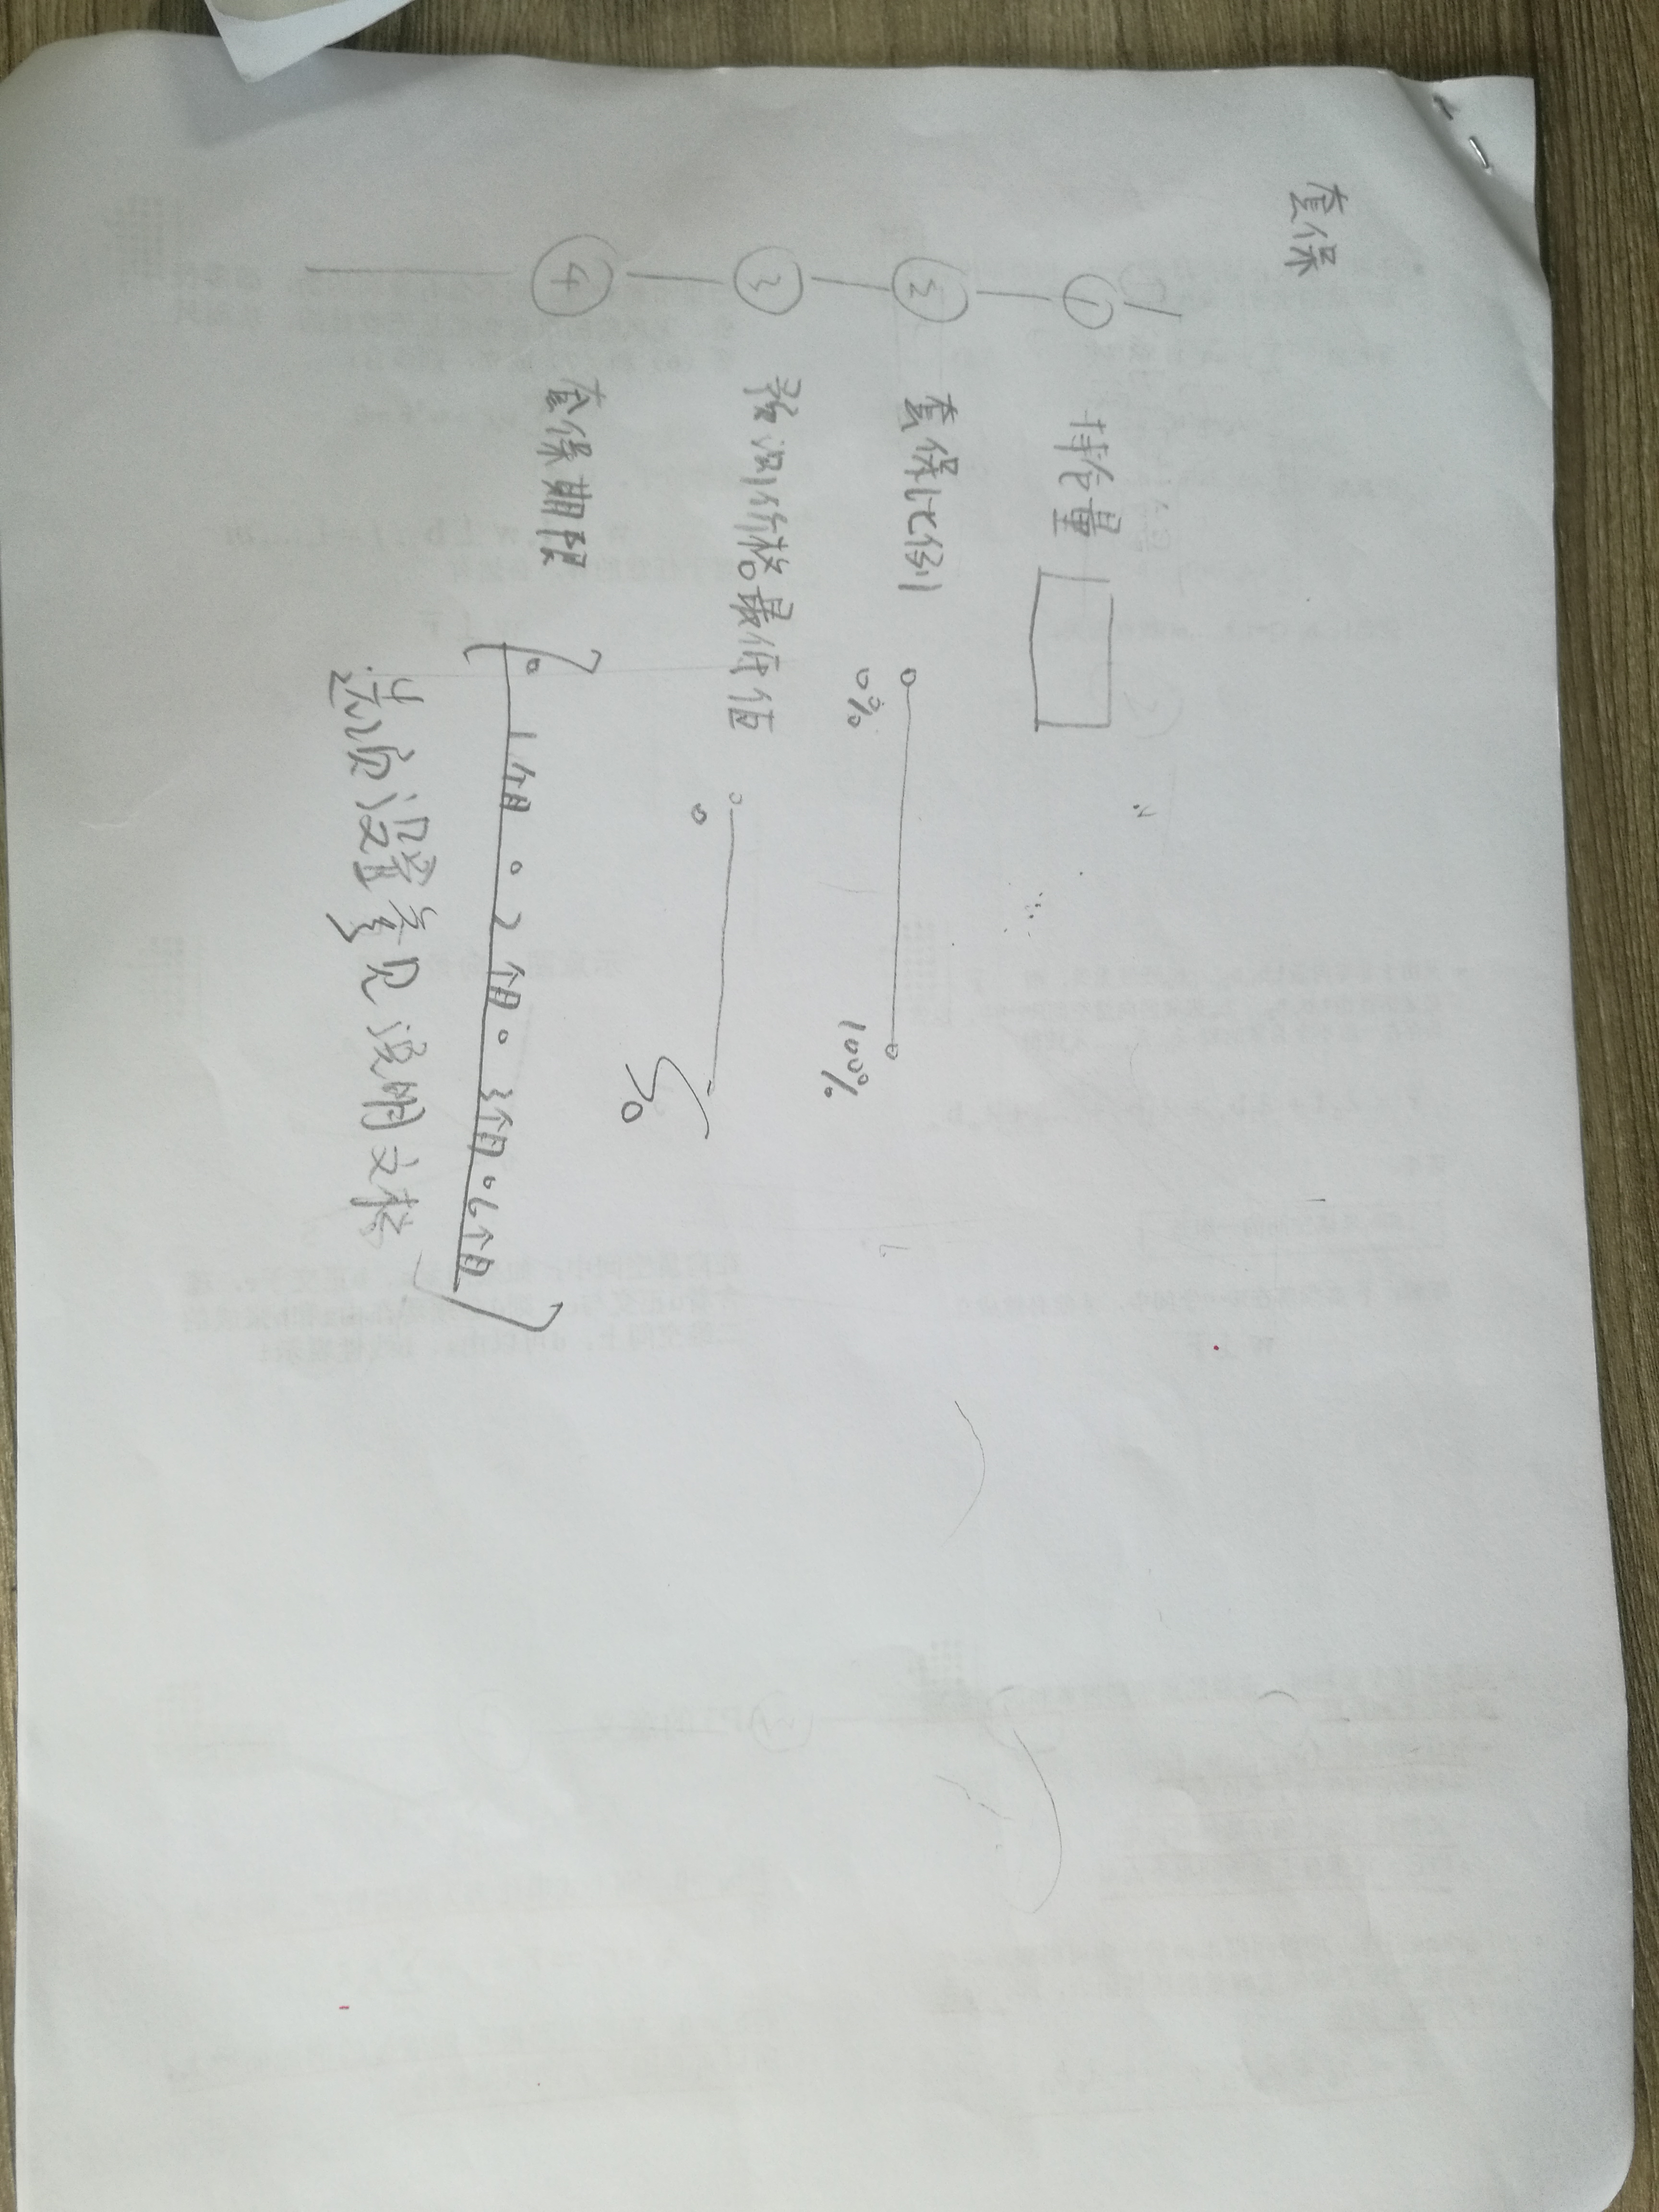 套保
① 持仓量
② 套保比例
0% 100%
③ 预测价格最低值
0 S0
④ 套保期限
1个月 2个月 3个月 6个月
选项设置参见说明文档